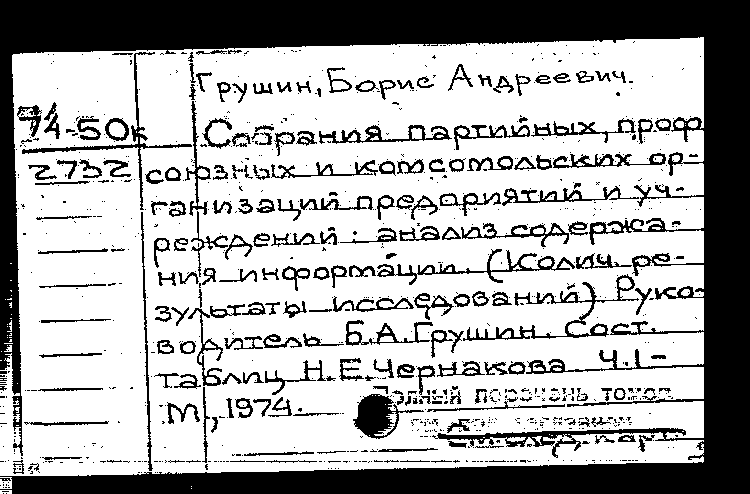 Грушин, Борис Андреевич.
74-50к Собрания партийных, проф
2732 союзных и комсомольских ор-
ганизаций предприятий и уч-
реждений: анализ содержа-
ния информации. (Колич. ре-
зультаты исследований) Руко-
водитель Б.А.Грушин. Сост.
таблиц Н.Е.Чернакова Ч.1-
М., 1974.
Полный перечень томов
см. след. карт